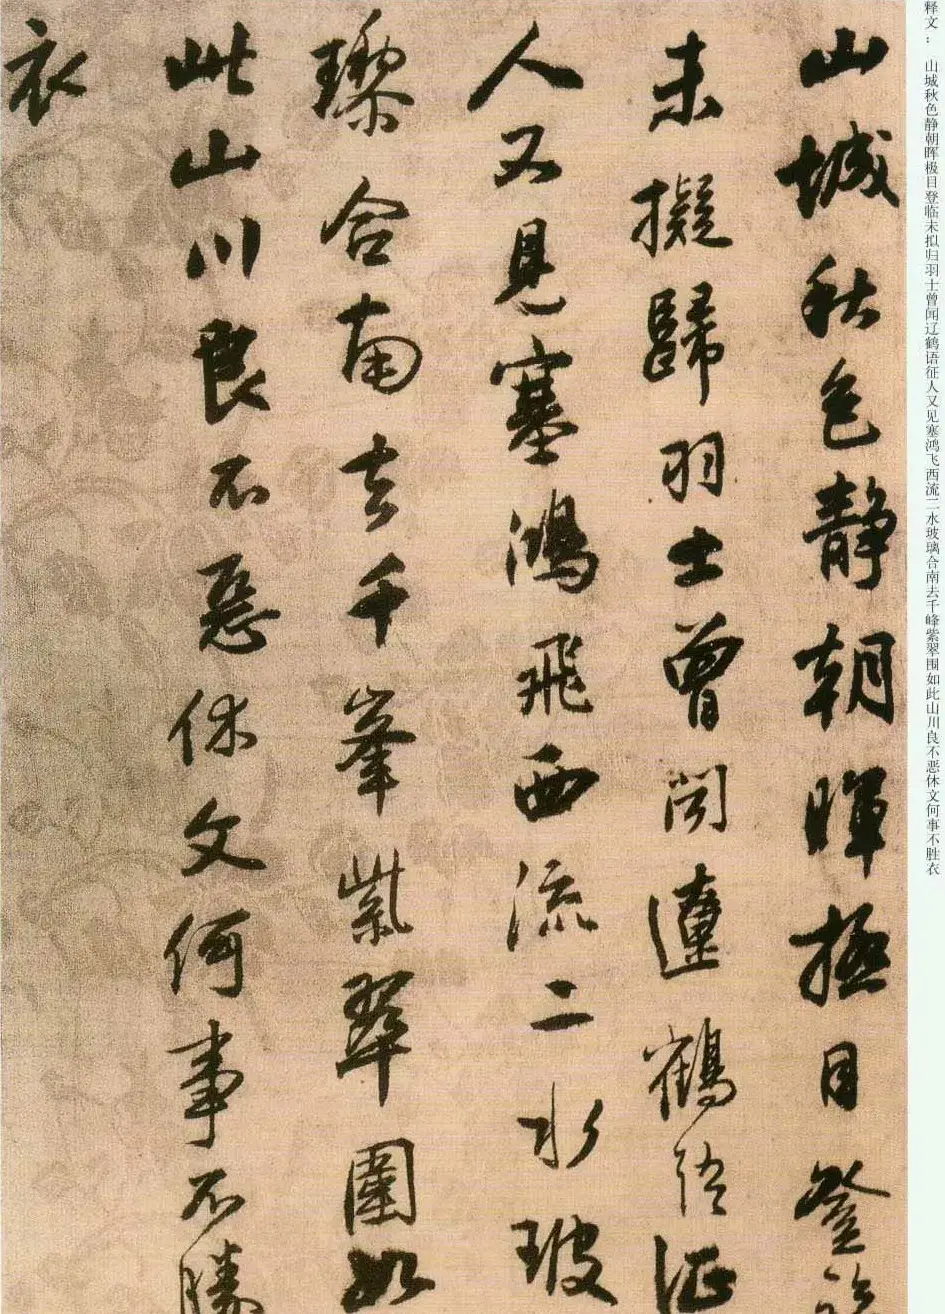 释文： 山城秋色静朝晖极目登临未拟归羽士曾闻辽鹤语征人又见塞鸿飞西流二水玻璃合南去千峰紫翠围如此山川良不恶休文何事不胜衣
山城秋色静朝暉極目登臨
未擬歸羽士曾聞遼鶴語征
人又見塞鴻飛西流二水玻
瓈合南去千峯紫翠圍如
此山川良不惡休文何事不勝
衣